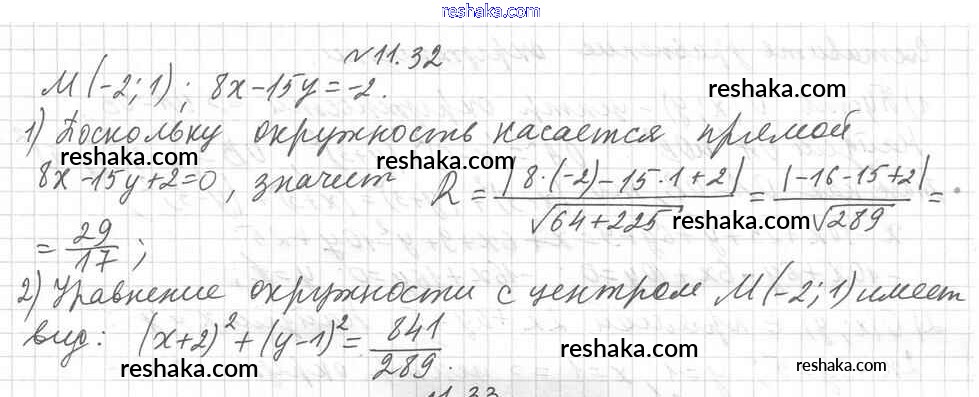 reshaka.com
№11.32
М(-2;1); 8x-15y=-2.
reshaka.com
1) Поскольку окружность касается прямой
reshaka.com reshaka.com
8x-15y+2=0, значит R = |8·(-2)-15·1+2| / √(64+225) = |-16-15+2| / √289 =
reshaka.com reshaka.com
= 29/17;
2) Уравнение окружности с центром М(-2;1) имеет
вид: (x+2)²+(y-1)² = 841/289.
reshaka.com reshaka.com reshaka.com
11.33